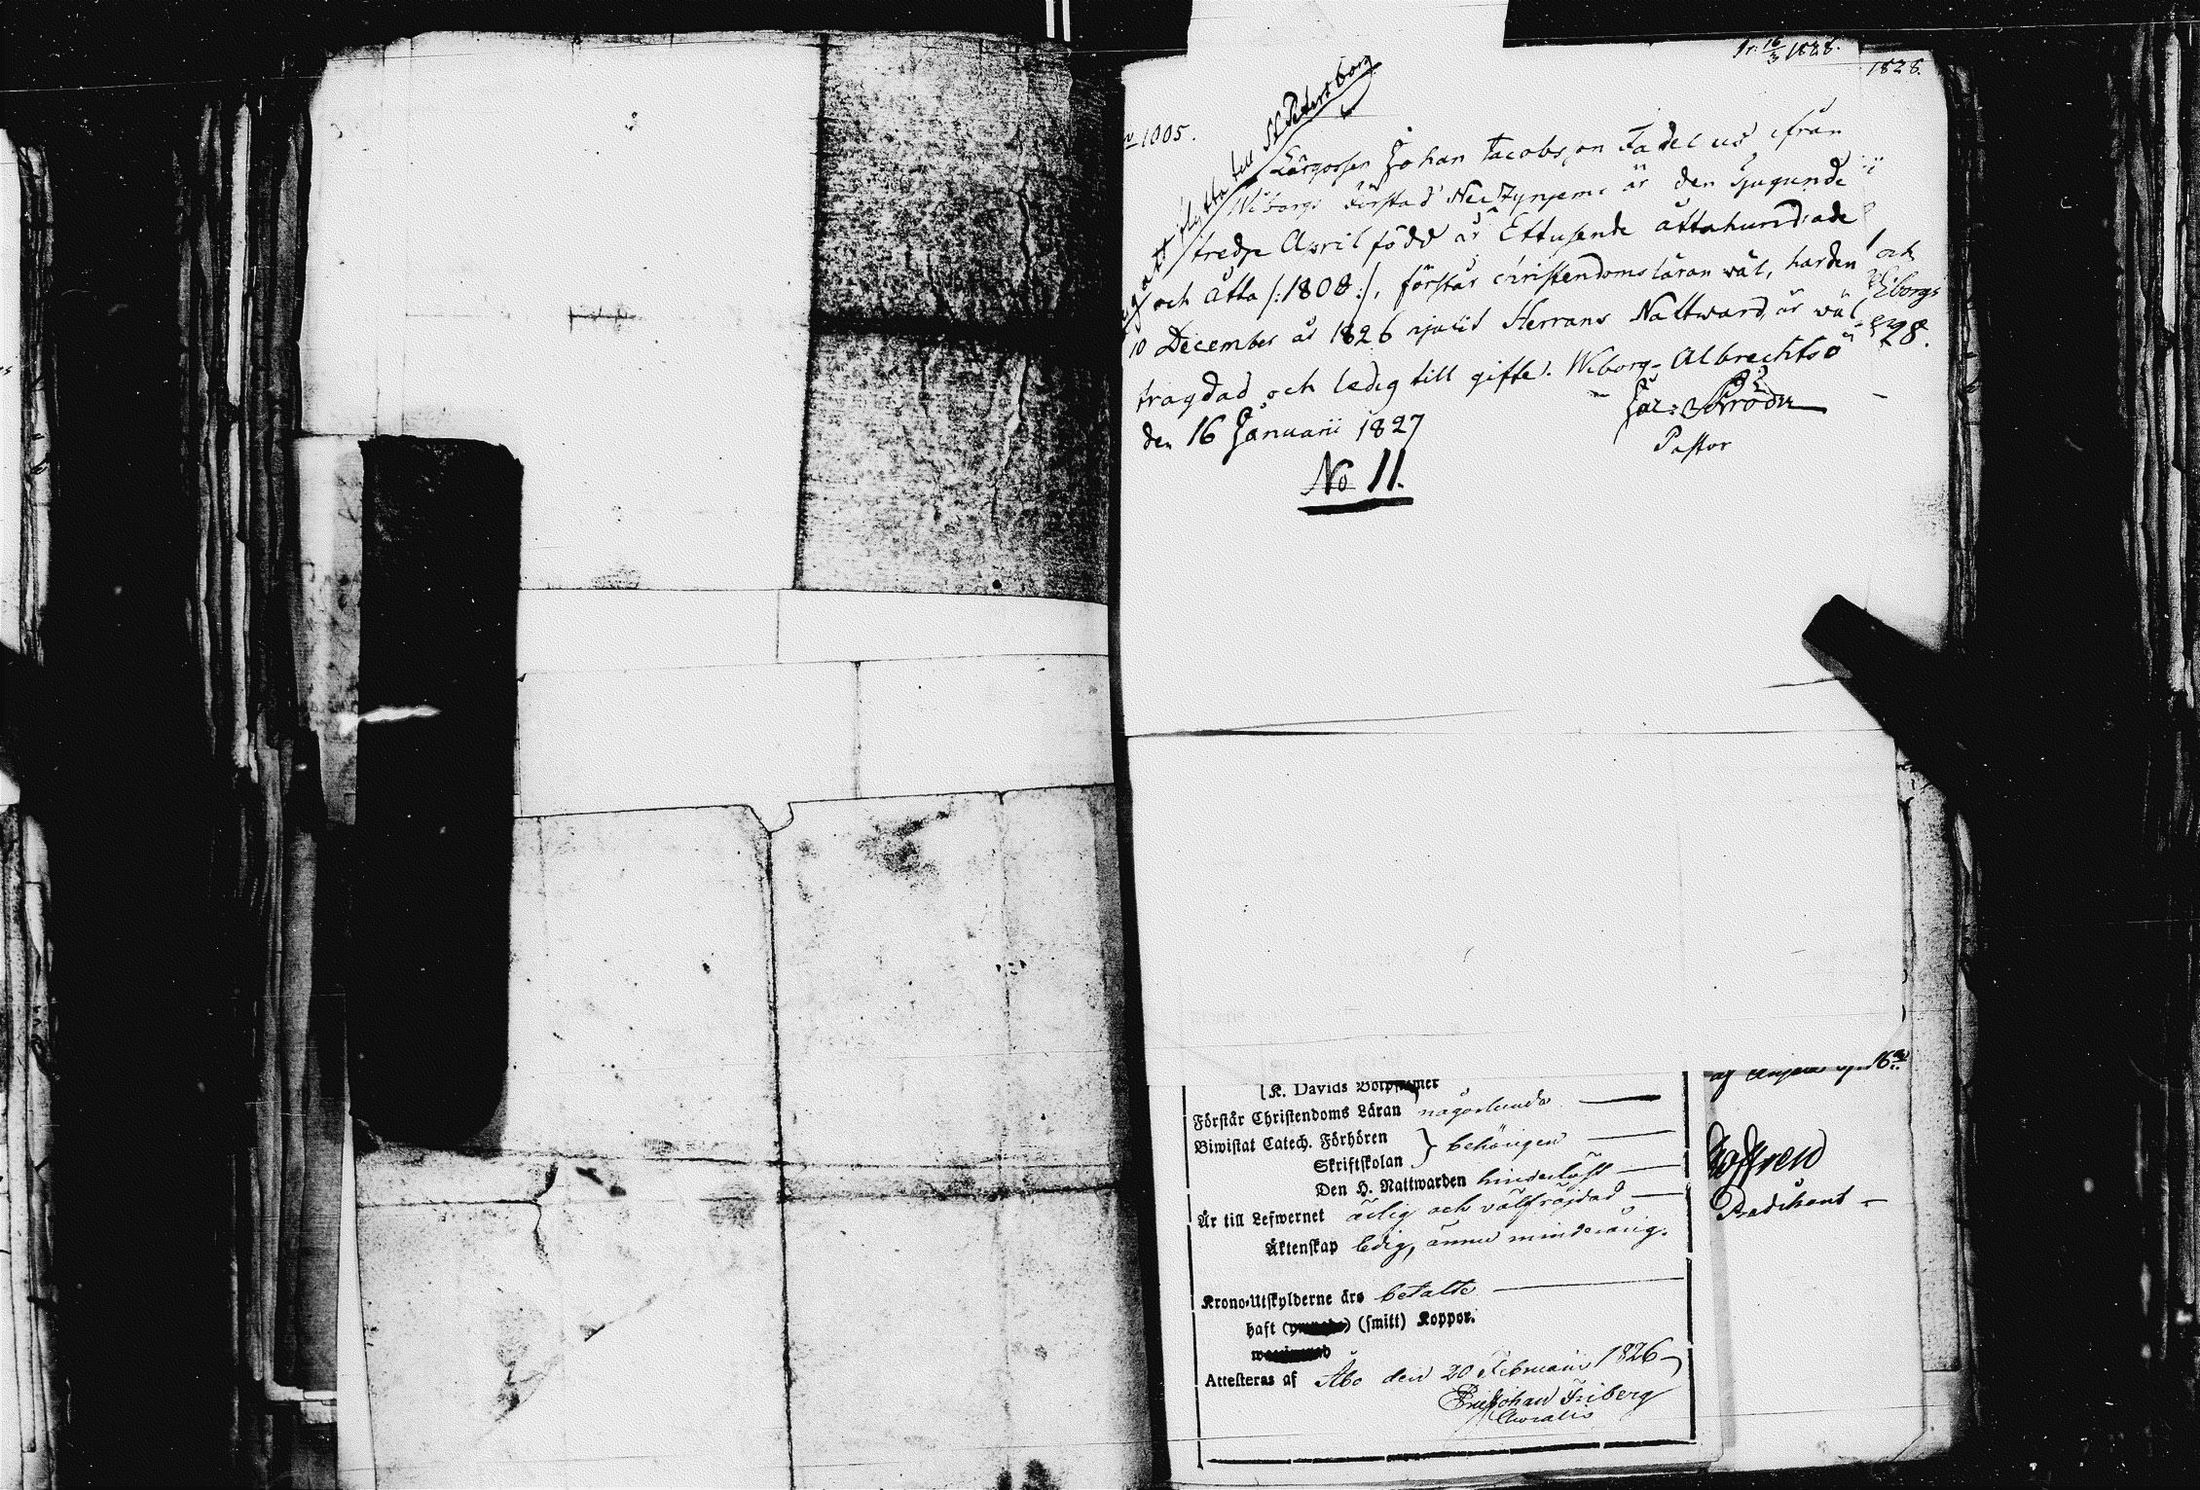 Pr. 16/3 1828.
1828.
No 1005.
flytta till St Petersborg
Lärgossen Johan Jacobsson Fadelus ifrån
Wiborgs förstad är den tjugunde
tredje April född år Ettusende åttahundrade
och åtta /:1808:/, förstår christendomsläran wäl, har den
10 December år 1826 njutit Herrans Nattward, är wäl
fragdad och ledig till gifte. Wiborg-Albrechtsö
den 16 Januarii 1827
Pastor
No 11.
och
Wiborgs
28.
K. Davids
Förstår Christendoms Läran någorlunda
Biwistat Catech. Förhören
Skriftskolan } behörigen
Den H. Nattwarden
Är till Lefwernet ärlig och välfräjdad
Äktenskap ledig, ännu minderårig.
Krono-Utskylderne äro betalte
haft (smitt) Koppor.
Attesteras af Åbo den 20 Februarii 1826
Johan Friberg
af 16
Predikant